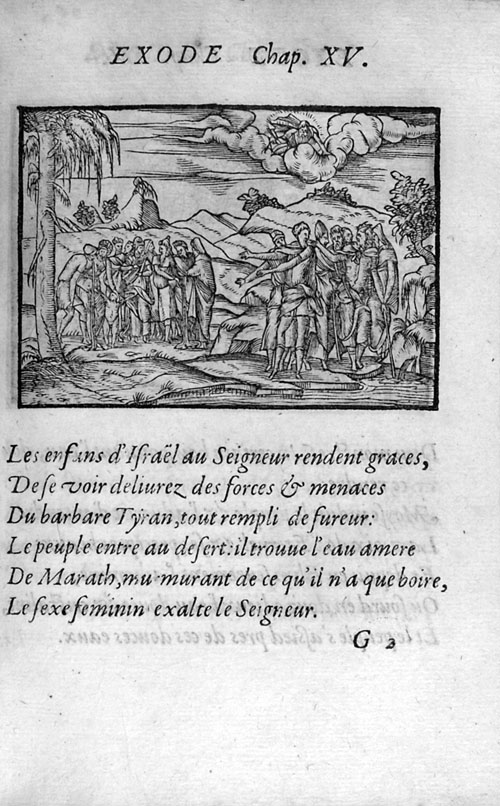 EXODE Chap. XV.
Les enfans d'Iſraël au Seigneur rendent graces,
De ſe voir deliurez des forces & menaces
Du barbare Tyran, tout rempli de fureur:
Le peuple entre au deſert: il trouue l'eau amere
De Marath, murmurant de ce qu'il n'a que boire,
Le ſexe feminin exalte le Seigneur.
G 2